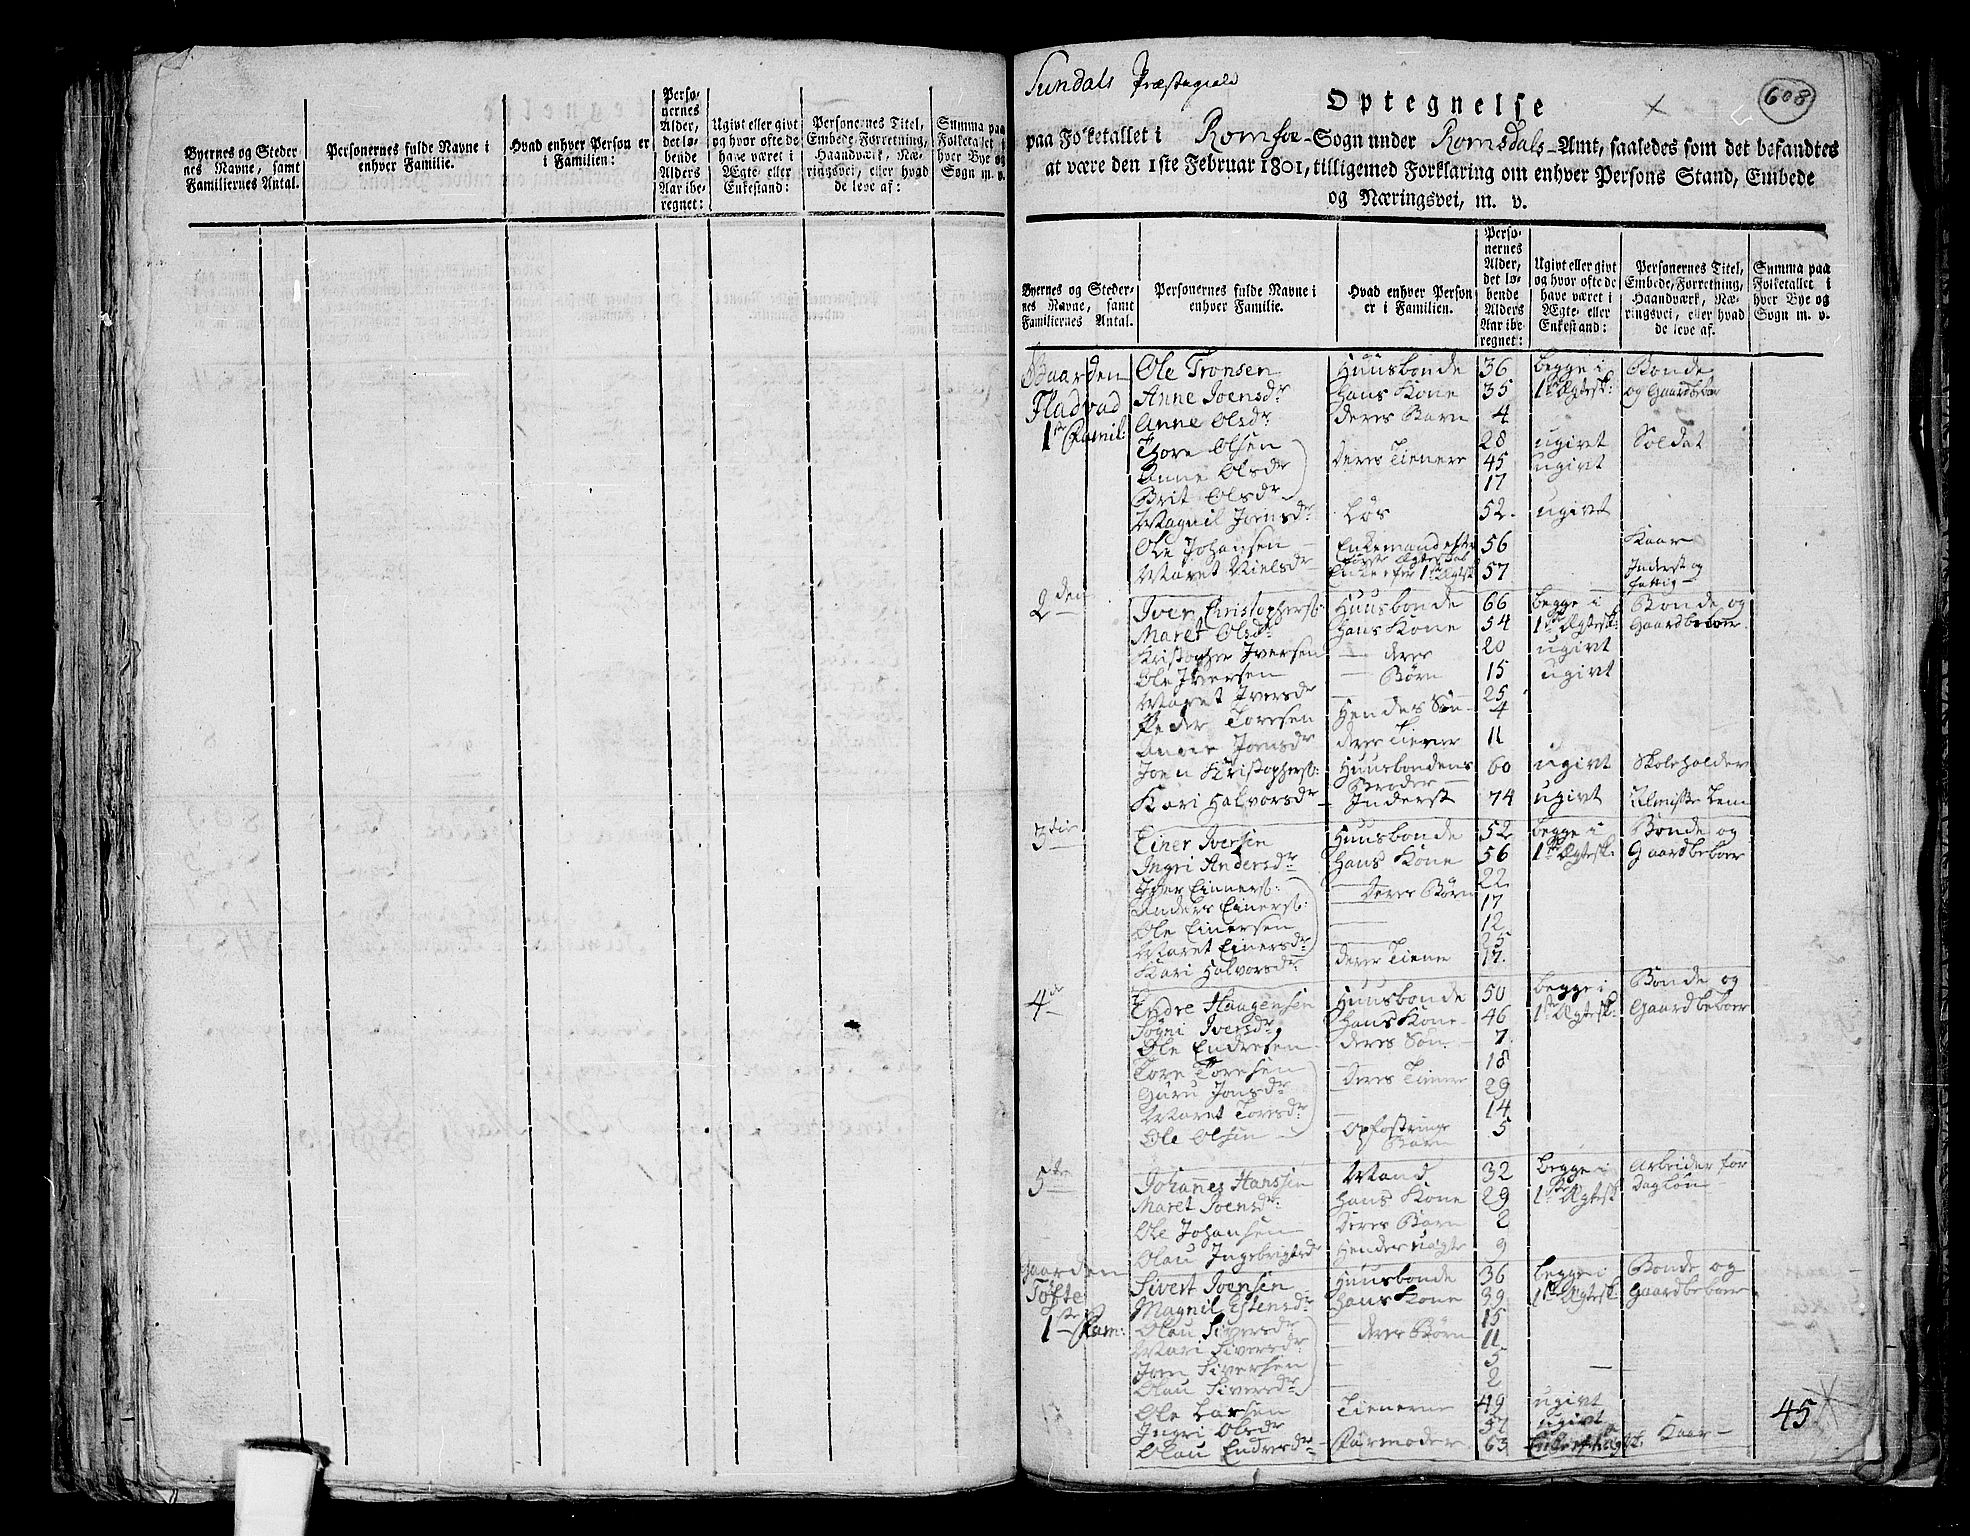 Byernes og Steder-
nes Navne, samt
Familiernes Antal.
Personernes fulde Navne i
enhver Familie.
Hvad enhver Person er
i Familien:
Perso-
nernes
Alder,
det lø-
bende
Alders
Aar ibe-
regnet:
Ugivt eller givt
og hvor ofte de
have været i
Ægte- eller
Enkestand:
Personernes Titel,
Embede, Forretning,
Haandværk, Næ-
ringsvei, eller hvad
de leve af:
Summa paa
Folketallet i
hver Bye og
Sogn m. v.
Sundals Præstegield
608
Optegnelse
paa Folketallet i Romfoe-Sogn under Romsdals-Amt, saaledes som det befandtes
at være den 1ste Februar 1801, tilligemed Forklaring om enhver Persons Stand, Embede
og Næringsvei, m. v.
Byernes og Steder-
nes Navne, samt
Familiernes Antal.
Personernes fulde Navne i
enhver Familie.
Hvad enhver Person
er i Familien.
Perso-
nernes
Alder,
det lø-
bende
Alders
Aar ibe-
regnet:
Ugivt eller givt
og hvor ofte de
have været i
Ægte- eller
Enkestand:
Personernes Titel,
Embede, Forretning,
Haandværk, Næ-
ringsvei, eller hvad
de leve af.
Summa paa
Folketallet i
hver Bye og
Sogn m. v.
Gaarden Ole Tronsen Huusbonde 36 begge i Bonde
Fladvad Anne Joensdr hans Kone 35 1ste Ægtesk: og Gaardbeboer
1ste Famil: Anne Olsdr deres Barn 4
Thore Olsen 28 ugivt Soldat
Anne Olsdr deres Tienere 45 ugivt
Brit Olsdr 17
Magnil Jornsdr Løs 52. ugivt
Ole Johansen Enkemand efter 56 Kaar
første Ægteskab
Maret Nielsdr Enke efter 1ste Ægtesk 57 Inderst og
fattig
2den Iver Christophers: Huusbonde 66 begge i Bonde og
Maret Olsdr hans Kone 54 1ste Ægtesk: Gaardbeboer
Kristopher Iversen — deres 20 ugivt
Ole Iversen — Børn 15 ugivt
Maret Iversdr 25
Peder Toresen Hendes Søn 4
Anne Jornsdr deres Tiener 11
Joen Kristophers: Huusbondens 60 ugivt Skoleholder
Broder
Kari Halvorsdr Inderst 74 ugivt Almisse Lem
3die Einer Iversen Huusbonde 52 begge i Bonde og
Ingri Andersdr hans Kone 56 1ste Ægtesk: Gaardbeboer
Iver Einers: deres Børn 22
Anders Einers: 17
Ole Einersen 12
Maret Einersdr 25
Kari Halvorsdr deres Tiener 17.
4de Endre Haagensen Huusbonde 50 begge i Bonde og
Sögni Iversdr hans Kone 46 1ste Ægtesk: Gaardbeboer
Ole Endresen deres Søn 7.
Tore Toresen 18
Guru Jonsdr deres Tienere 29
Maret Toresdr 14
Ole Olsen Opfostrings 5
Barn
5te Johannes Hanssen Mand 32 begge i Arbeider for
Maret Joensdr: hans Kone 29 1ste Ægtesk Dagløn
Ole Johansen deres Barn 2
Olau Ingebrigtsdr Hendes uægte 9
Gaarden Sivert Joensen Huusbonde 36 begge i Bonde og
Tofte Magnil Estensdr hans Kone 39. 1ste Ægtesk: Gaardbeboer
1ste Fam: Olau Siversdr deres Børn 15
Mari Siversdr 11
Jorn Siversen 5
Olau Siversdr 2
Ole Larsen Tienerne 49 ugivt
Ingri Olsdr 37 ugivt
Olau Endresdr Farmoder 63 Kaar
45